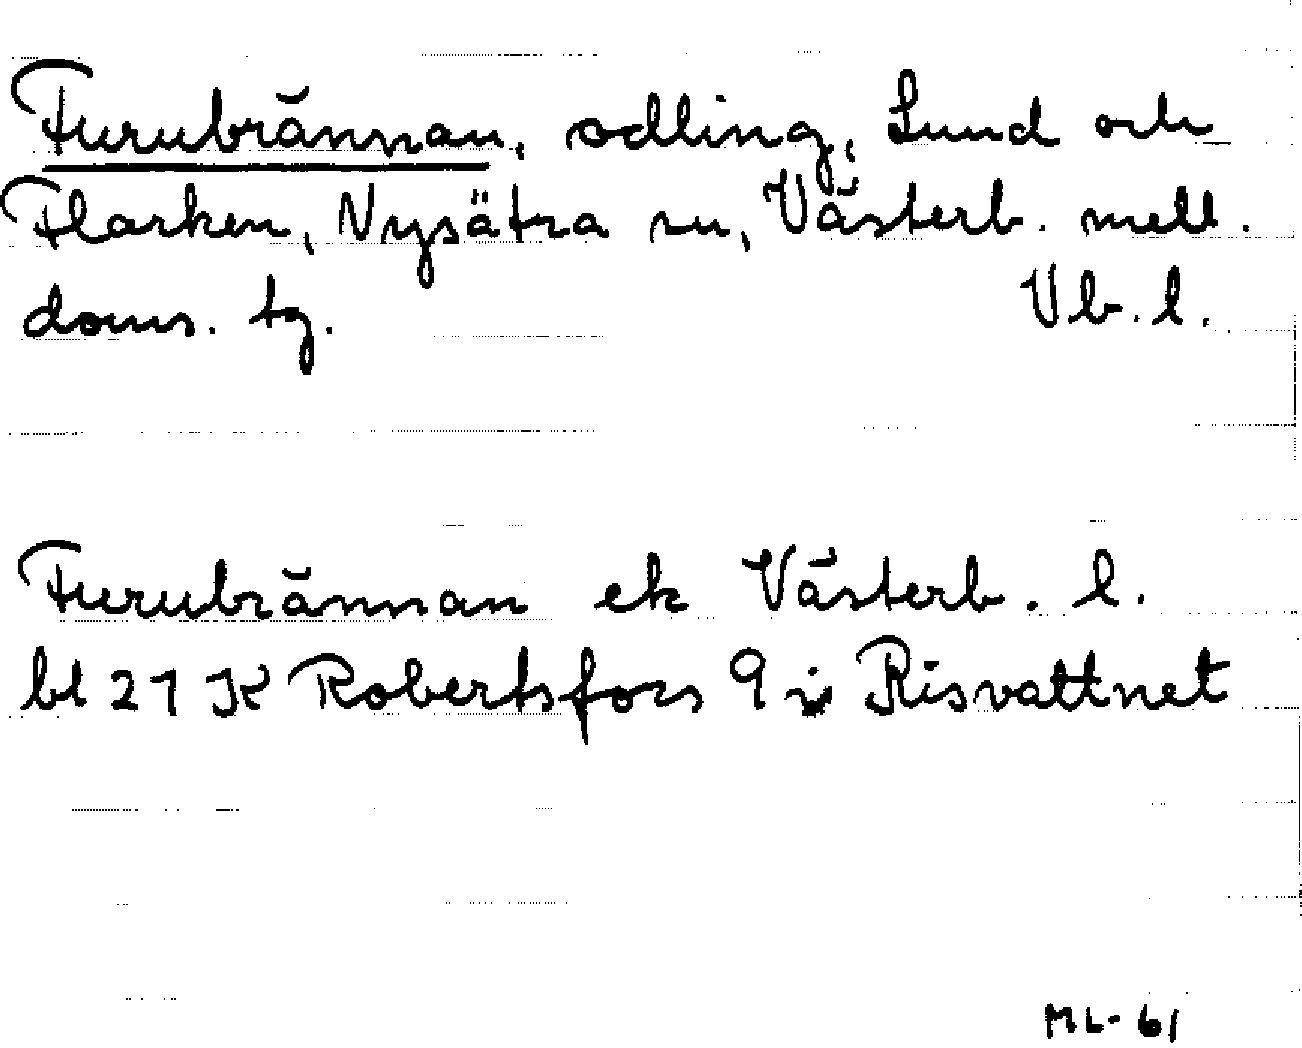 Furubrännan, odling, Lund och
Flarken, Nysätra sn, Västerb. mell.
doms. tg. Vb. l.
Furubrännan ek Västerb. l.
bl 21 K Robertsfors 9 i Risvattnet
ML-61